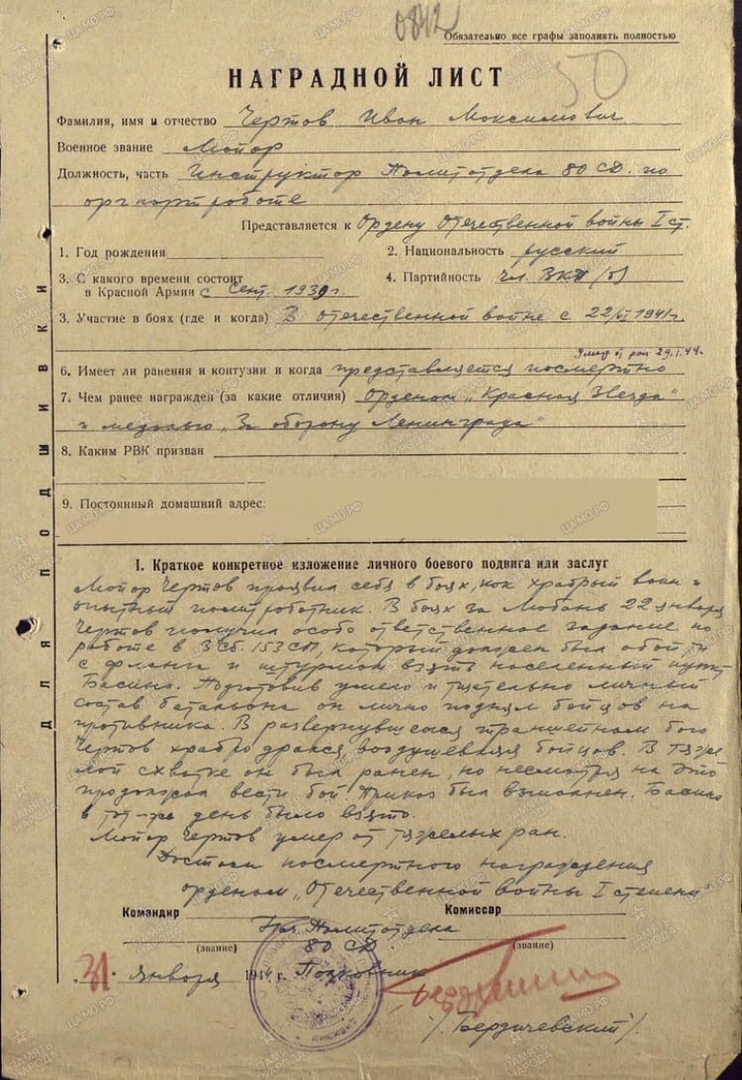 0842
Обязательно все графы заполнять полностью
50
НАГРАДНОЙ ЛИСТ
Фамилия, имя и отчество Чертов Иван Максимович
Военное звание Майор
Должность, часть Инструктор Политотдела 80 СД. по
оргпартработе
Представляется к Ордену Отечественной войны I ст.
1. Год рождения
2. Национальность русский
3. С какого времени состоит
в Красной Армии с сент. 1939 г.
4. Партийность чл. ВКП/б)
3. Участие в боях (где и когда) В отечественной войне с 22/VI 1941г.
Умер от ран 29.1.44г.
6. Имеет ли ранения и контузии и когда представляется посмертно
7. Чем ранее награжден (за какие отличия) орденом „Красная Звезда"
и медалью „За оборону Ленинграда"
8. Каким РВК призван
9. Постоянный домашний адрес:
ДЛЯ ПОДШИВКИ
I. Краткое конкретное изложение личного боевого подвига или заслуг
Майор Чертов проявил себя в боях, как храбрый воин и
опытный политработник. В боях за Любань 22 января
Чертов получил особо ответственное задание по
работе в 3 сб. 153 СП, который должен был обойти
с фланга и штурмом взять населенный пункт
Басино. Подготовив умело и тщательно личный
состав батальона он лично поднял бойцов на
противника. В развернувшемся траншейном бою
Чертов храбро дрался, воодушевляя бойцов. В тяже
лой схватке он был ранен, но несмотря на это
продолжал вести бой. Приказ был выполнен. Басино
в тот-же день было взято.
Майор Чертов умер от тяжелых ран.
Достоин посмертного награждения
орденом „Отечественной войны I степени"
Командир
Комиссар
Нач. Политотдела
(звание)
80 СД
(звание)
31. января 1944 г. Полковник
/Бердичевский/.